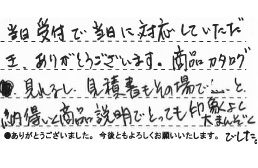 当日受付で当日に対応していただ
き、ありがとうございます。商品カタログ
見れるし、見積書もその場で…と
納得いく商品説明でとっても印象よく
大まんぞく
でした。
●ありがとうございました。今後ともよろしくお願いいたします。